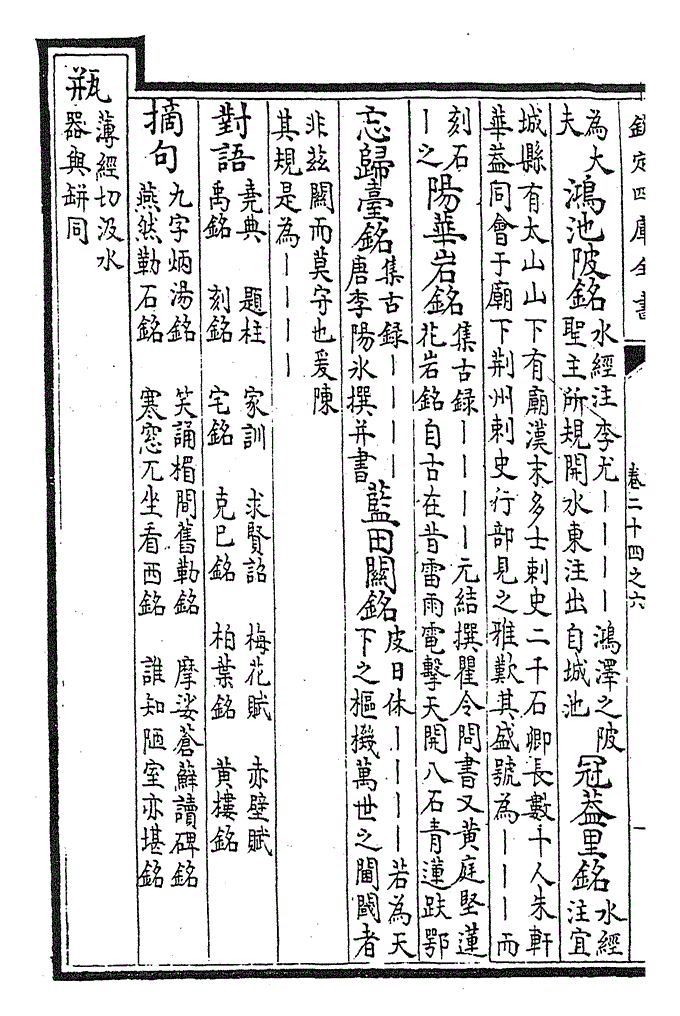 欽定四庫全書 卷二十四之六
為大夫 鴻池陂銘 水經注李尤｜｜｜｜鴻澤之陂聖主所規開水東注出自城池 冠葢里銘 水經注宜
城縣有太山山下有廟漢末多士刺史二千石卿長數十人朱軒
華葢同會于廟下荆州刺史行部見之雅歎其盛號為｜｜｜而
刻石｜之 陽華岩銘 集古録｜｜｜｜元結撰瞿令問書又黄庭堅蓮花岩銘自古在昔雷雨電擊天開八石青蓮趺鄂
忘歸臺銘 集古録｜｜｜｜唐李陽氷撰并書 藍田關銘 皮日休｜｜｜｜若為天下之樞機萬世之閫閾者
非兹關而莫守也爰陳
其規是為｜｜｜｜
對語 堯典 題柱 家訓 求賢詔 梅花賦 赤壁賦
禹銘 刻銘 宅銘 克己銘 柏葉銘 黄樓銘
摘句 九字炳湯銘 笑誦楣間舊勒銘 摩娑蒼蘚讀碑銘
燕然勒石銘 寒窓兀坐看西銘 誰知陋室亦堪銘
瓶 薄經切汲水
器與缾同